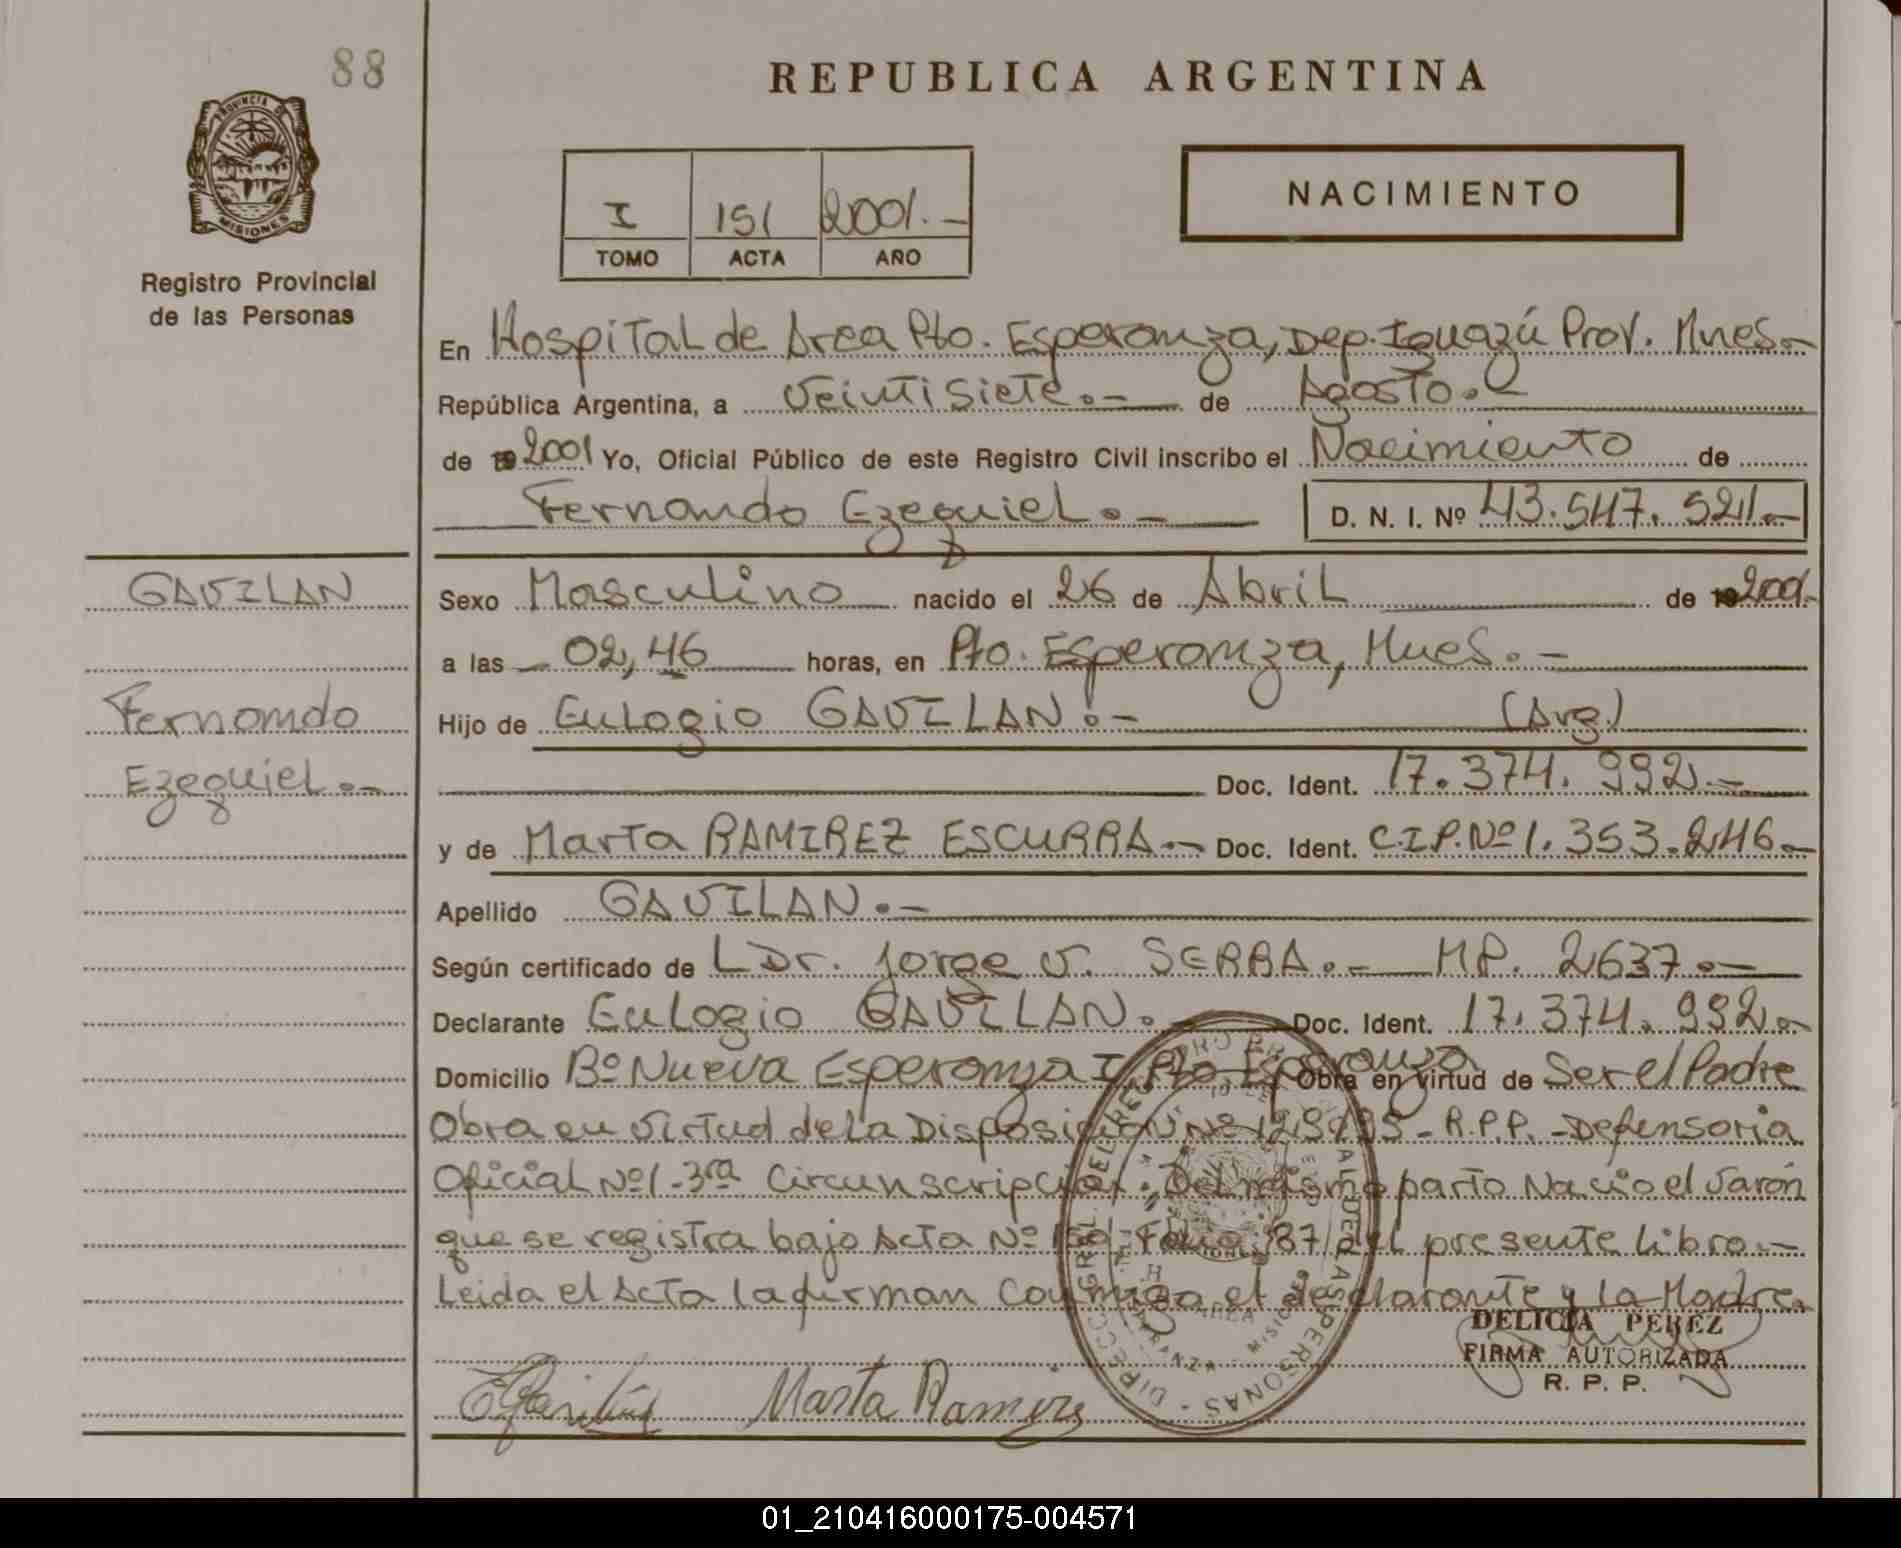 88
REPUBLICA ARGENTINA
PROVINCIA DE
MISIONES
NACIMIENTO
I 151 2001.-
TOMO ACTA AÑO
Registro Provincial
de las Personas
En Hospital de Area Pto. Esperanza, Dep. Iguazú Prov. Mnes.-
República Argentina, a Veintisiete.- de Agosto.-
de 19 2001 Yo, Oficial Público de este Registro Civil inscribo el Nacimiento de
Fernando Ezequiel.- D. N. I. Nº 43.547.521.-
GAVILAN
Sexo Masculino nacido el 26 de Abril de 19 2001.-
a las 02,46 horas, en Pto. Esperanza, Mnes.-
Fernando
Hijo de Eulogio GAVILAN.- (Arg.)
Ezequiel.-
Doc. Ident. 17.374.992.-
y de Marta RAMIREZ ESCURRA.- Doc. Ident. C.I.P.Nº 1.353.246.-
Apellido GAVILAN.-
Según certificado de L Dr. Jorge V. SERRA.- MP. 2637.-
Declarante Eulogio GAVILAN.- Doc. Ident. 17.374.992.-
Domicilio Bº Nueva Esperanza I, Pto. Esperanza Obra en virtud de Ser el Padre
Obra en virtud de la Disposición Nº - R.P.P. - Defensoria
Oficial Nº 1 - 3ra Circunscripción. Del mismo parto Nacio el Varón
que se registra bajo Acta Nº 150, Folio 87 del presente Libro.-
Leida el Acta la firman conmigo el declarante y la Madre.
DELICIA PEREZ
FIRMA AUTORIZADA
R. P. P.
Marta Ramirez
DIRECC. GRAL. DEL REGISTRO PROVINCIAL DE LAS PERSONAS
MISIONES
01_210416000175-004571